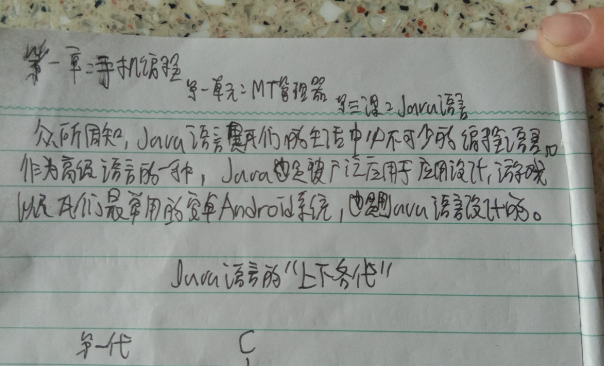 第一章:手机编程
第一单元:MT管理器
第三课:Java语言
众所周知,Java语言是我们的生活中必不可少的编程语言。
作为高级语言的一种,Java也是被广泛应用于应用设计,游戏
以及我们最常用的安卓Android系统,也是Java语言设计的。
Java语言的“上下各代”
第一代 C